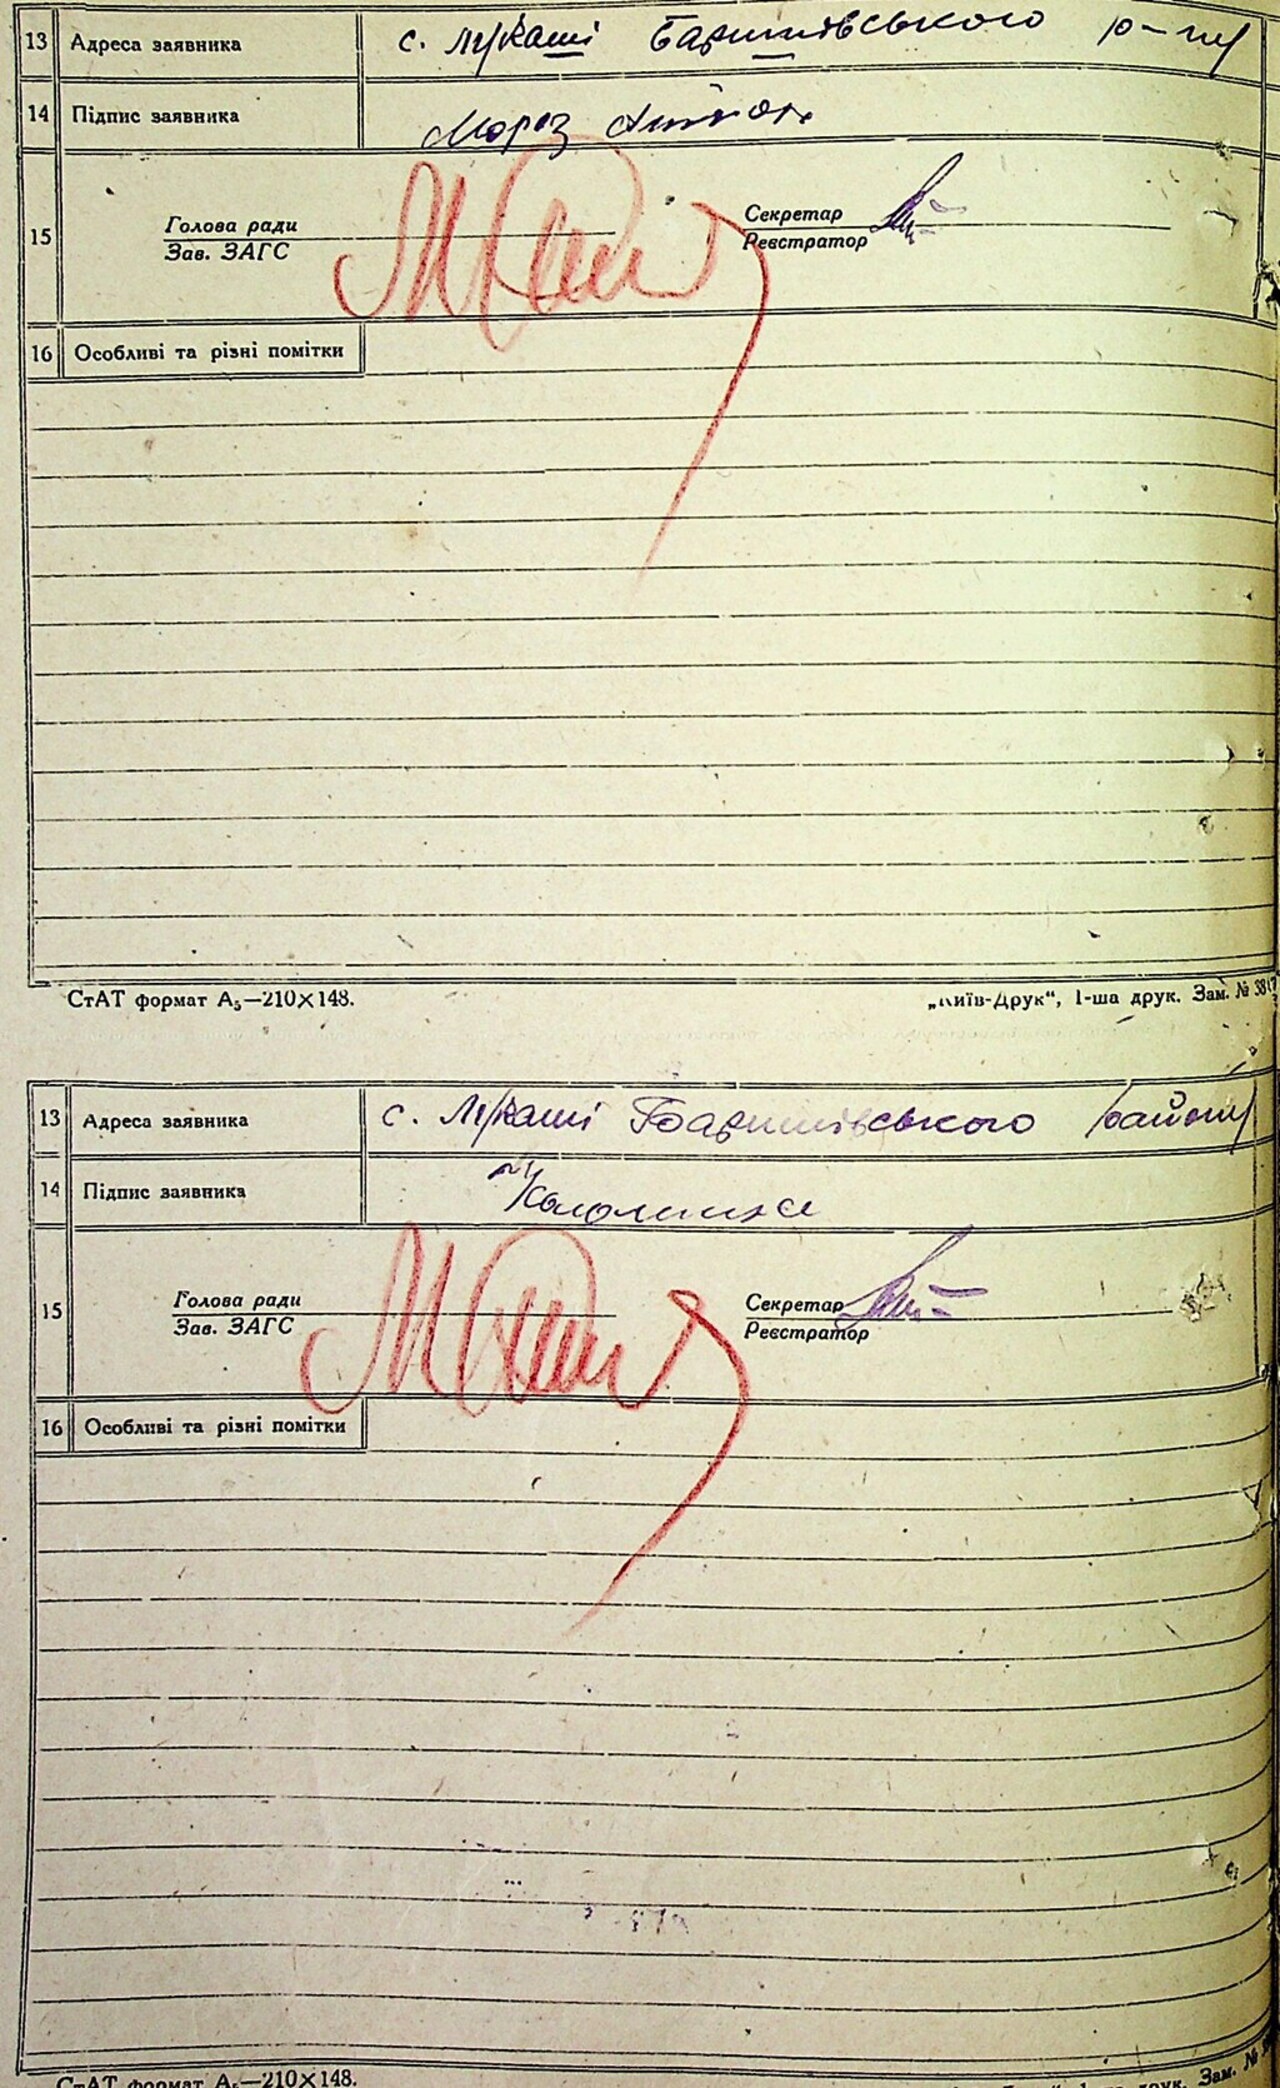 13 Адреса заявника с. Лукаші Баришівського р-ну
14 Підпис заявника Мороз Антон
15 Голова ради Секретар
Зав. ЗАГС Реєстратор
16 Особливі та різні помітки
СтАТ формат А₅—210×148. „Київ-Друк“, 1-ша друк. Зам. № 3817
13 Адреса заявника с. Лукаші Баришівського району
14 Підпис заявника
15 Голова ради Секретар
Зав. ЗАГС Реєстратор
16 Особливі та різні помітки
СтАТ формат А₅—210×148. друк. Зам. №